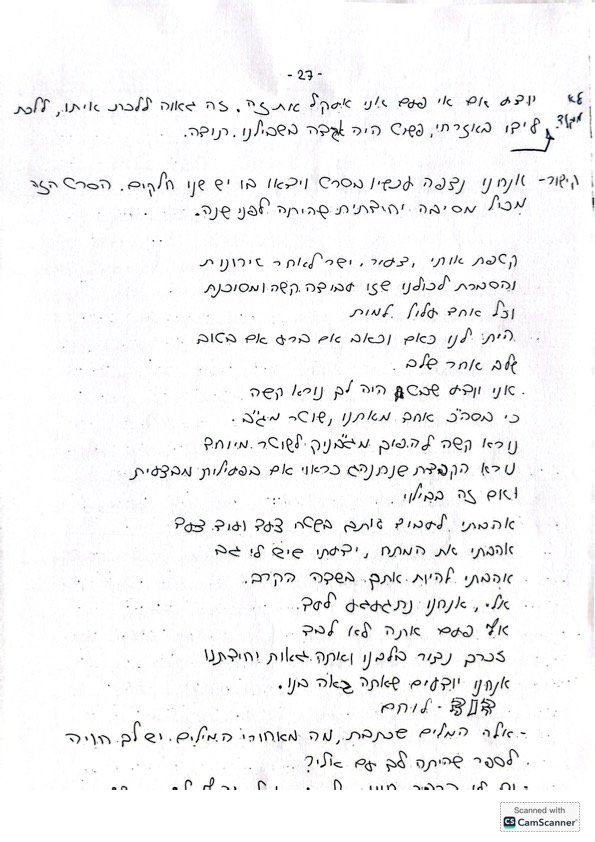 - 27 -
יודע אם אי פעם אני אשקל את זה. זה גאווה ללכת איתו, ללכת
לידו באזרחי, פשוט היה אגדה בשבילנו. תודה.
לא
קישור- אנחנו נצפה עכשיו בסרט וידאו בו יש שני חלקים. הסרט הזה
מכיל מסיבה יחידתית שהיתה לפני שנה.
קטפת אותי, צעיר, ישר לאחר טירונות
והסברת לכולנו שזו עבודה קשה ומסוכנת
וכל אחד עלול למות
היית לנו כאם וכאב אם ברע אם בטוב
שלב אחר שלב.
אני יודע שבשבילך היה לך נורא קשה
כי בסה"כ אחד מאתנו, שוטר מג"ב.
נורא קשה להפוך מג"בניק לשוטר מיוחד
נורא הקפדת שנתנהג כראוי אם בפעילות מבצעית
ואם זה בבילוי.
אהבתי לעמוד אותך בשטח צעד ועוד צעד
אהבתי את המתח, ידעתי שיש לי גב
אהבתי להיות אתך בשדה הקרב.
אלי, אנחנו נתגעגע לעד
אף פעם אתה לא לבד
זכרך נצור בלבנו ואתה גאוות יחידתנו
אנחנו יודעים שאתה גאה בנו.
לוחם
-אלה המלים שכתבת, מה מאחורי המילים. יש לך חוויה
לספר שהיתה לך עם אלי?
Scanned with
CS CamScanner